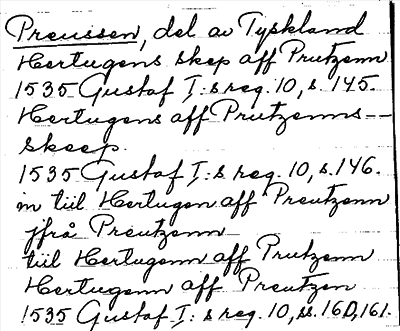 Preussen, del av Tyskland
Hertugens skep aff Prutzenn
1535 Gustaf I:s reg. 10, s. 145.
Hertugens aff Prutzenns--
skeep.
1535 Gustaf I:s reg. 10, s. 146.
in till Hertugen aff Preutzenn
ifrå Preutzenn
till Hertugenn aff Prutzenn
Hertugenn aff Preutzen
1535 Gustaf I:s reg. 10, ss. 160, 161.